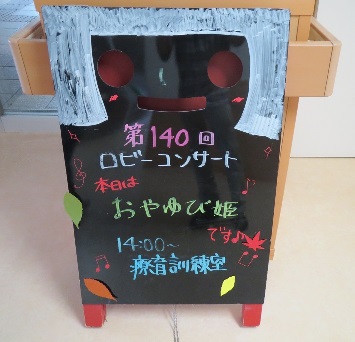 第140回
ロビーコンサート
本日は
おやゆび姫
です♪
14:00～
療育訓練室